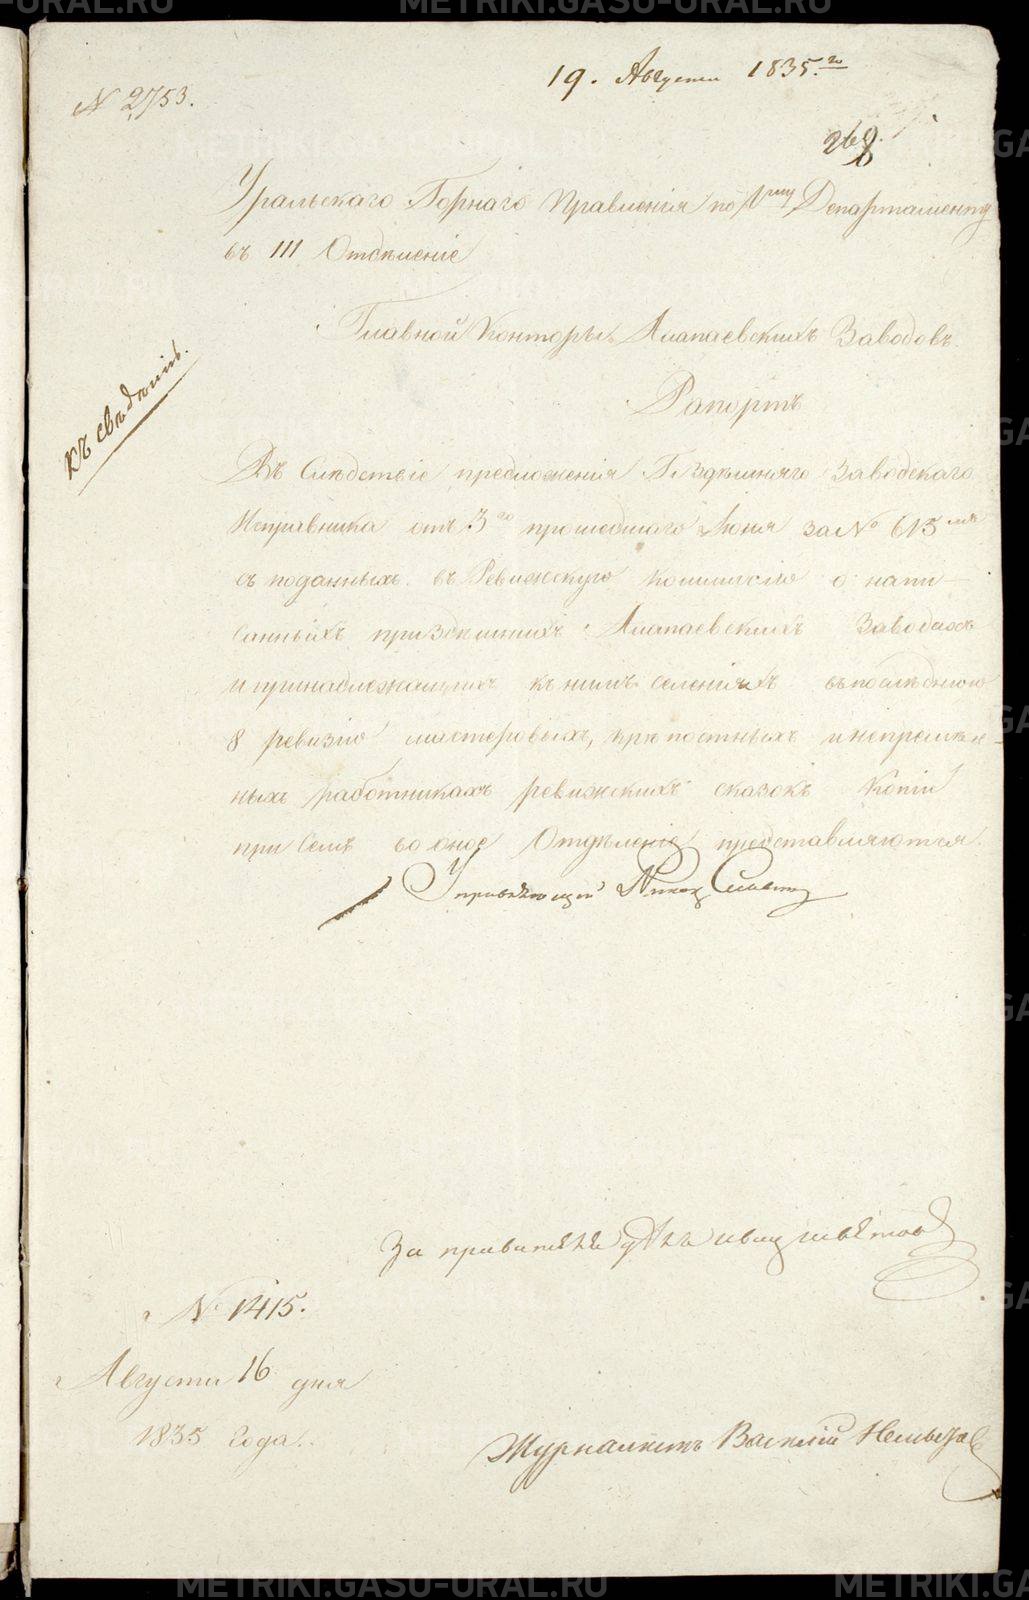 19. Августа 1835.го
N 2753.
268
Уральскаго Горнаго Правленія по 1му Департаменту
въ III Отдѣленіе
Главной Конторы Алапаевскихъ Заводовъ.
Рапортъ
къ свѣденію.
Въ Слѣдствіе предложенія Г. Здѣшняго Заводскаго
Исправника отъ 3го прошедшаго Июня за № 613мъ
съ поданныхъ въ Ревижскую коммисію о напи-
санныхъ при здѣшнихъ Алапаевскихъ Заводахъ
и принадлежащихъ къ нимъ селеніяхъ въ последнюю
8 ревизію мастеровыхъ, крѣпостныхъ и непремѣн-
ныхъ работникахъ ревижскихъ сказокъ Копіи
при Семъ во оное Отдѣленіе представляются.
Управляющій
За правителя дѣлъ
№ 1415.
Августа 16 дня
1835 года.
Журналистъ Василій
METRIKI.GASU-URAL.RU